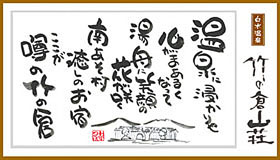 白水温泉
竹の倉山荘
温泉に浸かると
心がまあるく
なって
湯舟に笑顔の
花が咲く
南あそ村
癒しのお宿
ここが
噂の竹の倉